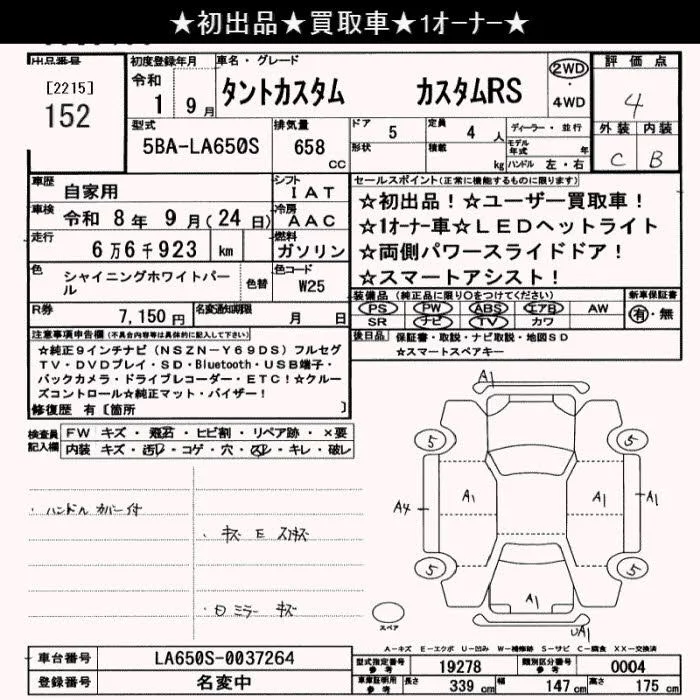 ★初出品★買取車★1オーナー★
出品番号
[2215]
152
初度登録年月
令和
1 9月
車名・グレード
タントカスタム カスタムRS
2WD
・
4WD
評価点
4
外装 内装
C B
型式
5BA-LA650S
排気量
658
cc
ドア 5 定員 4 人
形状 積載 kg
ディーラー・並行
モデル年式 年
ハンドル 左・右
車歴 自家用
シフト IAT
車検 令和 8年 9月(24日)
冷房 AAC
走行 6万6千923 km
燃料 ガソリン
色 シャイニングホワイトパール
色替
色コード W25
R券 7,150円
名変通知期限 月 日
セールスポイント(正常に機能するものに限ります)
☆初出品!☆ユーザー買取車!
☆1オーナー車☆LEDヘットライト
☆両側パワースライドドア!
☆スマートアシスト!
装備品(純正品に限り○をつけてください)
PS PW ABS エアB AW
SR ナビ TV カワ
新車保証書
有・無
後日品 保証書・取説・ナビ取説・地図SD
☆スマートスペアキー
注意事項申告欄(不具合内容等は具体的に記入して下さい)
☆純正9インチナビ(NSZN-Y69DS)フルセグ
TV・DVDプレイ・SD・Bluetooth・USB端子・
バックカメラ・ドライブレコーダー・ETC!☆クルー
ズコントロール☆純正マット・バイザー!
修復歴 有〔箇所 〕
検査員記入欄
FW キズ・飛石・ヒビ割・リペア跡・×要
内装 キズ・汚レ・コゲ・穴・スレ・キレ・破レ
・ハンドル カバー付
・キズ E スリキズ
・Dミラー キズ
A1
5 5
A4 A1 A1 A1
5 5
A1
UA1
スペア
A-キズ E-エクボ U-凹み W-補修跡 S-サビ C-腐食 XX-交換済
車台番号 LA650S-0037264
登録番号 名変中
型式指定番号 参考 19278
類別区分番号 参考 0004
車庫証明用 参考 長さ 339 cm 幅 147 cm 高さ 175 cm